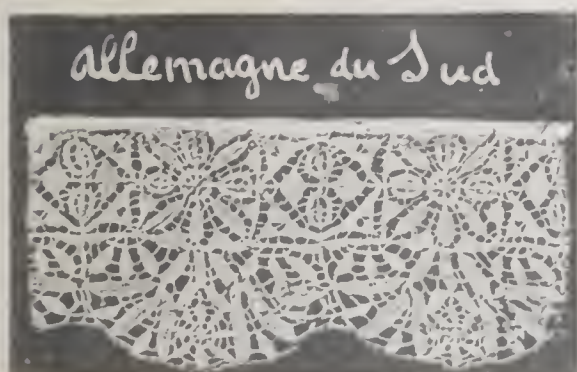 allemagne du Sud